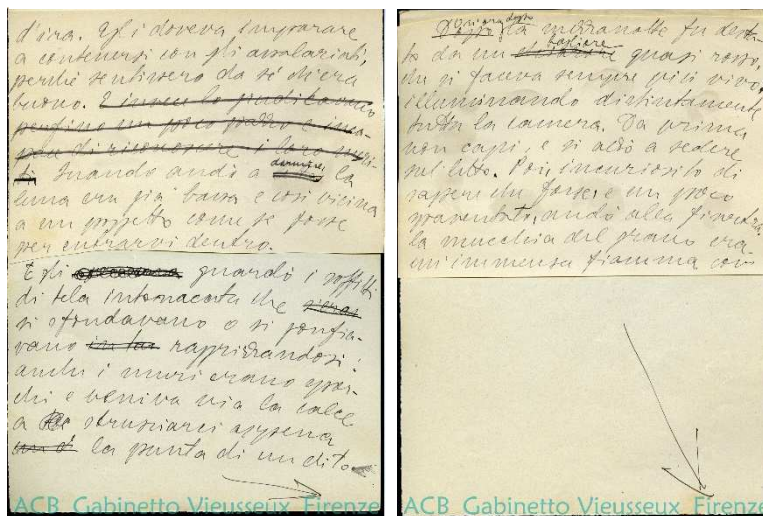 d'ira. Egli doveva imparare
a contenersi con gli assalariati,
perché sentissero da sé di era
buono. E invece lo giudicavano
perfino un poco pazzo e inca-
pace di riconoscere i loro meri-
ti. Quando andò a dormire, la
luna era già bassa e così vicina
a un poggetto come se fosse
per entrarvi dentro.
Egli guardò i soffitti
di tela intonacata che
si sfondavano o si gonfia-
vano raggrinzandosi:
anche i muri erano spor-
chi e veniva via la calce
a strusciarci appena
la punta di un dito
ACB Gabinetto Vieusseux Firenze
la mezzanotte fu desta-
to da un bagliore quasi rosso,
che si faceva sempre più vivo,
illuminando distintamente
tutta la camera. Da prima
non capì, e si alzò a sedere
sul letto. Poi, incuriosito di
sapere che fosse, e un poco
spaventato, andò alla finestra.
la mucchia del grano era
un'immensa fiamma così
ACB Gabinetto Vieusseux Firenze